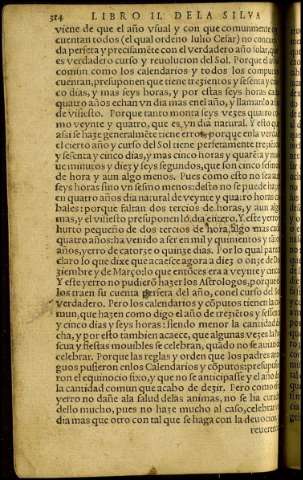 314 LIBRO II. DE LA SILVA
viene de que el año vsual y con que comunmente
cuentan todos (el qual ordeno Iulio Cesar) no
da perfeta y precisamēte con el verdadero año solar, que
es verdadero curso y reuolucion del Sol. Porque el año
comun como los calendarios y todos los computos
cuentan, presuponen que tiene trezientos y sesenta y
co dias, y mas seys horas, y por estas seys horas cada
quatro años echan vn dia mas en el año, y llamanlo año
de visiesto. Porque tanto monta seys vezes quatro co
mo veynte y quatro, que es, vn dia natural. Y esto
assi se haze generalmēte tiene error, porque en la verdad
el cierto año y curso del Sol tiene perfetamente trezientos
y sesenta y cinco dias, y mas cinco horas y quarēta y nue
ue minutos y diez y seys segundos, que son cinco sesmos
de hora y aun algo menos. Pues como esto no sea assi
seys horas sino vn sesmo menos: desto no se puede hazer
en quatro años dia natural de veynte y quatro horas ca
bales: porque faltan dos tercios de horas, y aun algo
mas, y el visiesto presuponenlo, dia entero. Y este yerro
hurto pequeño de dos tercios de hora, algo mas cada
quatro años: ha venido a ser en mil y quinientos y tantos
años, yerro de catorze o quinze dias. Por lo qual parece
claro lo que dixe que acaesce agora a diez o onze de De
ziembre y de Março: lo que entōces era a veynte y cinco
Y este yerro no pudierō hazer los Astrologos, porque
los traen su cuenta perfeta del año, conel curso del Sol
verdadero. Pero los calendarios y cōputos tienen la co
mun, que hazen como digo el año de trezientos y sesenta
y cinco dias y seys horas: siendo menor la cantidad di
cha, y por esto tambien acaece, que algunas vezes la Pas
cua y fiestas mouibles se celebran, quādo no se auian de
celebrar. Porque las reglas y orden que los padres anti
guos pusieron enlos Calendarios y cōputos: presupusie
ron el equinocio fixo, y que no se anticipasse y el año de
la cantidad comun que acabo de dezir. Pero como este
yerro no dañe ala salud delas animas, no se ha curado
dello mucho, pues no haze mucho al caso, celebrar vn
dia mas que otro con tal que se haga con la deuocion
reuerencia